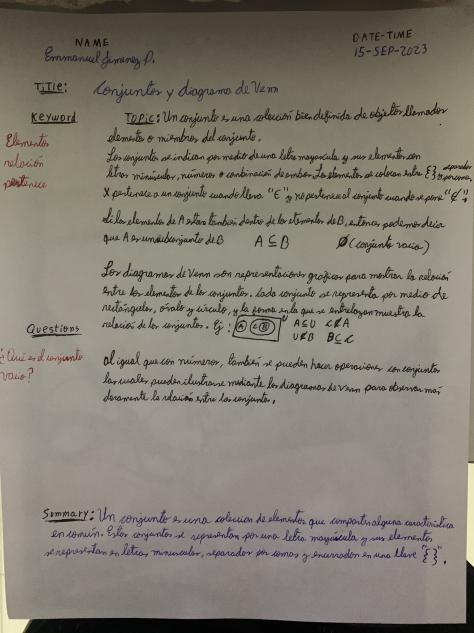 NAME
DATE-TIME
Emmanuel Jimenez P.
15-SEP-2023
Title: Conjuntos y diagrama de Venn
Keyword
Topic: Un conjunto es una colección bien definida de objetos llamados
elementos o miembros del conjunto.
Elementos
relación
pertenece
Los conjunto se indican por medio de una letra mayuscula y sus elementos son
letras minúsculas, números o combinación de ambos. Los elementos se colocan entre { } separados por comas.
X pertenece a un conjunto cuando lleva "∈" y no pertenece al conjunto cuando se pone "∉".
los elementos de A estan tambien dentro de los elementos de B, entonces podemos decir
que A es un subconjunto de B A ⊆ B Ø (conjunto vacio)
Los diagramas de Venn son representaciones gráficas para mostrar la relación
entre los elementos de los conjuntos. Cada conjunto se representa por medio de
rectángulos, óvalo y círculo, y la forma en la que se entrelazan muestra la
relación de los conjuntos. Ej: A C B U A⊆U C⊄A
U⊄B B⊆C
Questions
¿Qué es el conjunto
vacio?
al igual que con números, también se pueden hacer operaciones con conjuntos
las cuales pueden ilustrarse mediante los diagramas de Venn para observar más
claramente la relación entre los conjuntos.
Summary: Un conjunto es una coleccion de elementos que comparten alguna caracteristica
en común. Estos conjuntos se representan por una letra mayúscula y sus elementos
se representan en letras minusculas, separados por comas y encerrados en una llave "{ }".